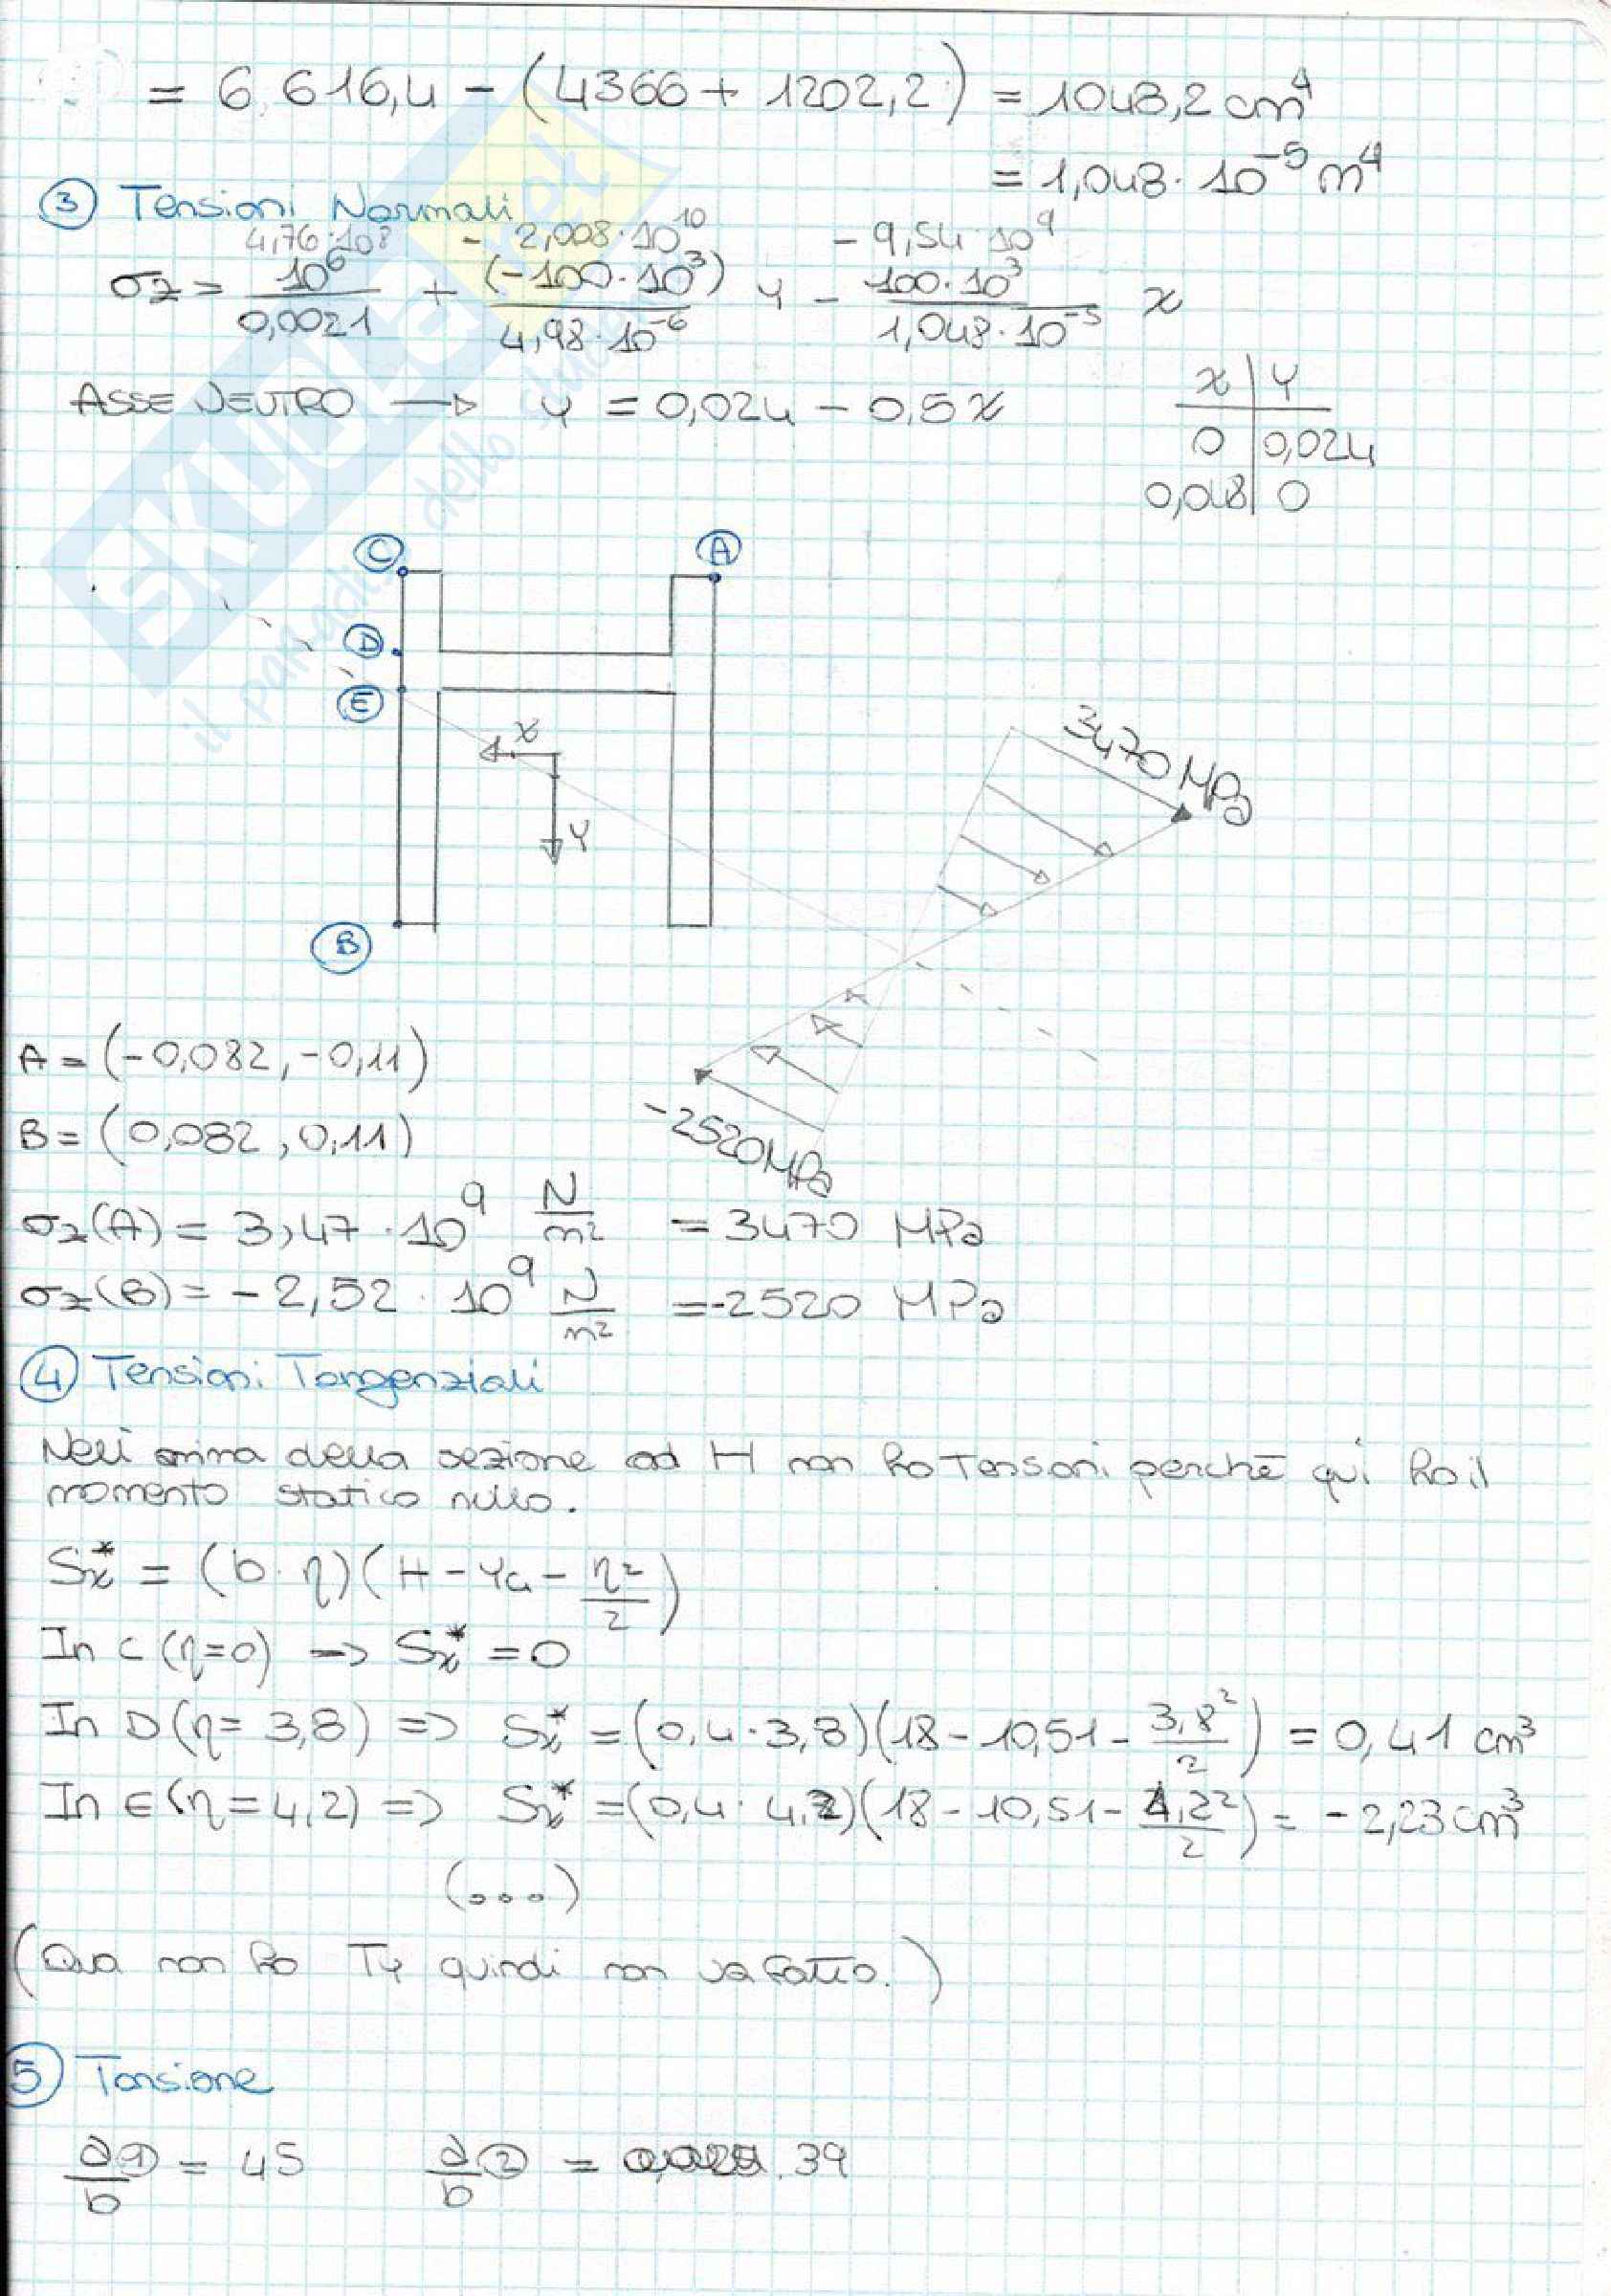 = 6.616,4 - (4366 + 1202,2) = 1048,2 cm⁴
= 1,048 · 10⁻⁵ m⁴
③ Tensioni Normali
4,76·10⁸ - 2,008·10¹⁰ - 9,54·10⁹
σz = 10⁶/0,0021 + (-100·10³)/4,98·10⁻⁶ y - 100·10³/1,048·10⁻⁵ x
ASSE NEUTRO → y = 0,024 - 0,5x
x | y
0 | 0,024
0,048 | 0
C
A
D
E
x
y
B
3470 MPa
-2520 MPa
A = (-0,082, -0,11)
B = (0,082, 0,11)
σz(A) = 3,47 · 10⁹ N/m² = 3470 MPa
σz(B) = -2,52 · 10⁹ N/m² = -2520 MPa
④ Tensioni Tangenziali
Nell'anima della sezione ad H non ho tensioni perchè qui ho il
momento statico nullo.
Sx* = (b·η)(H - yG - η²/2)
In C (η=0) => Sx* = 0
In D (η= 3,8) => Sx* = (0,4·3,8)(18 - 10,51 - 3,8²/2) = 0,41 cm³
In E (η = 4,2) => Sx* = (0,4·4,2)(18 - 10,51 - 4,2²/2) = -2,23 cm³
(...)
(Qua non ho Ty quindi non va fatto.)
⑤ Torsione
a/b ① = 45 a/b ② = 39
SKUOLA.net
il paradiso dello studente